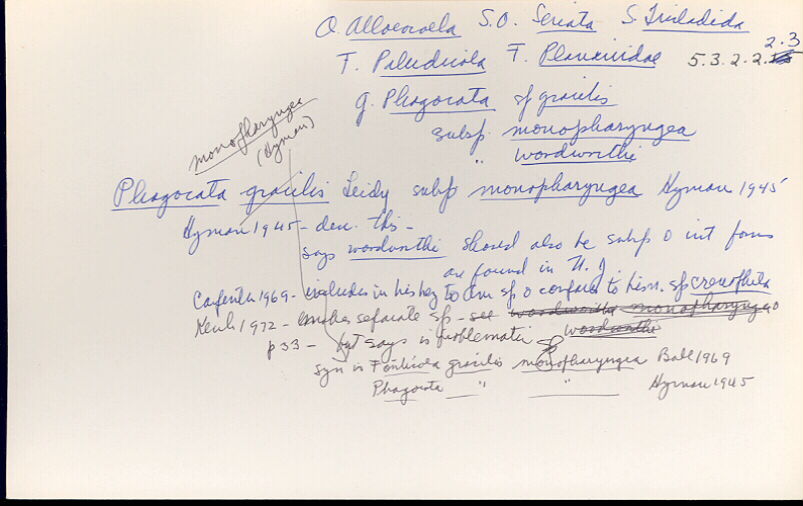 O. Alloeocoela S.O. Seriata S. Tricladida
T. Paludicola F. Planariidae 5.3.2.2. 2.3
g. Phagocata sp gracilis
subsp. monopharyngea
" wordworthi
monopharyngea
(Hyman)
Phagocata gracilis Leidy subsp monopharyngea Hyman 1945
Hyman 1945 - des. this -
says wordworthi should also be subsp int forms
are found in N. J
Carpenter 1969 - includes in his key to Am sp compares to his n. sp crenophila
Kenk 1972 - makes separate sp - see wordworthi monopharyngea
p 33 - but says is problematic wordworthi
syn is Fonticola gracilis monopharyngea Ball 1969
Phagocata " " Hyman 1945